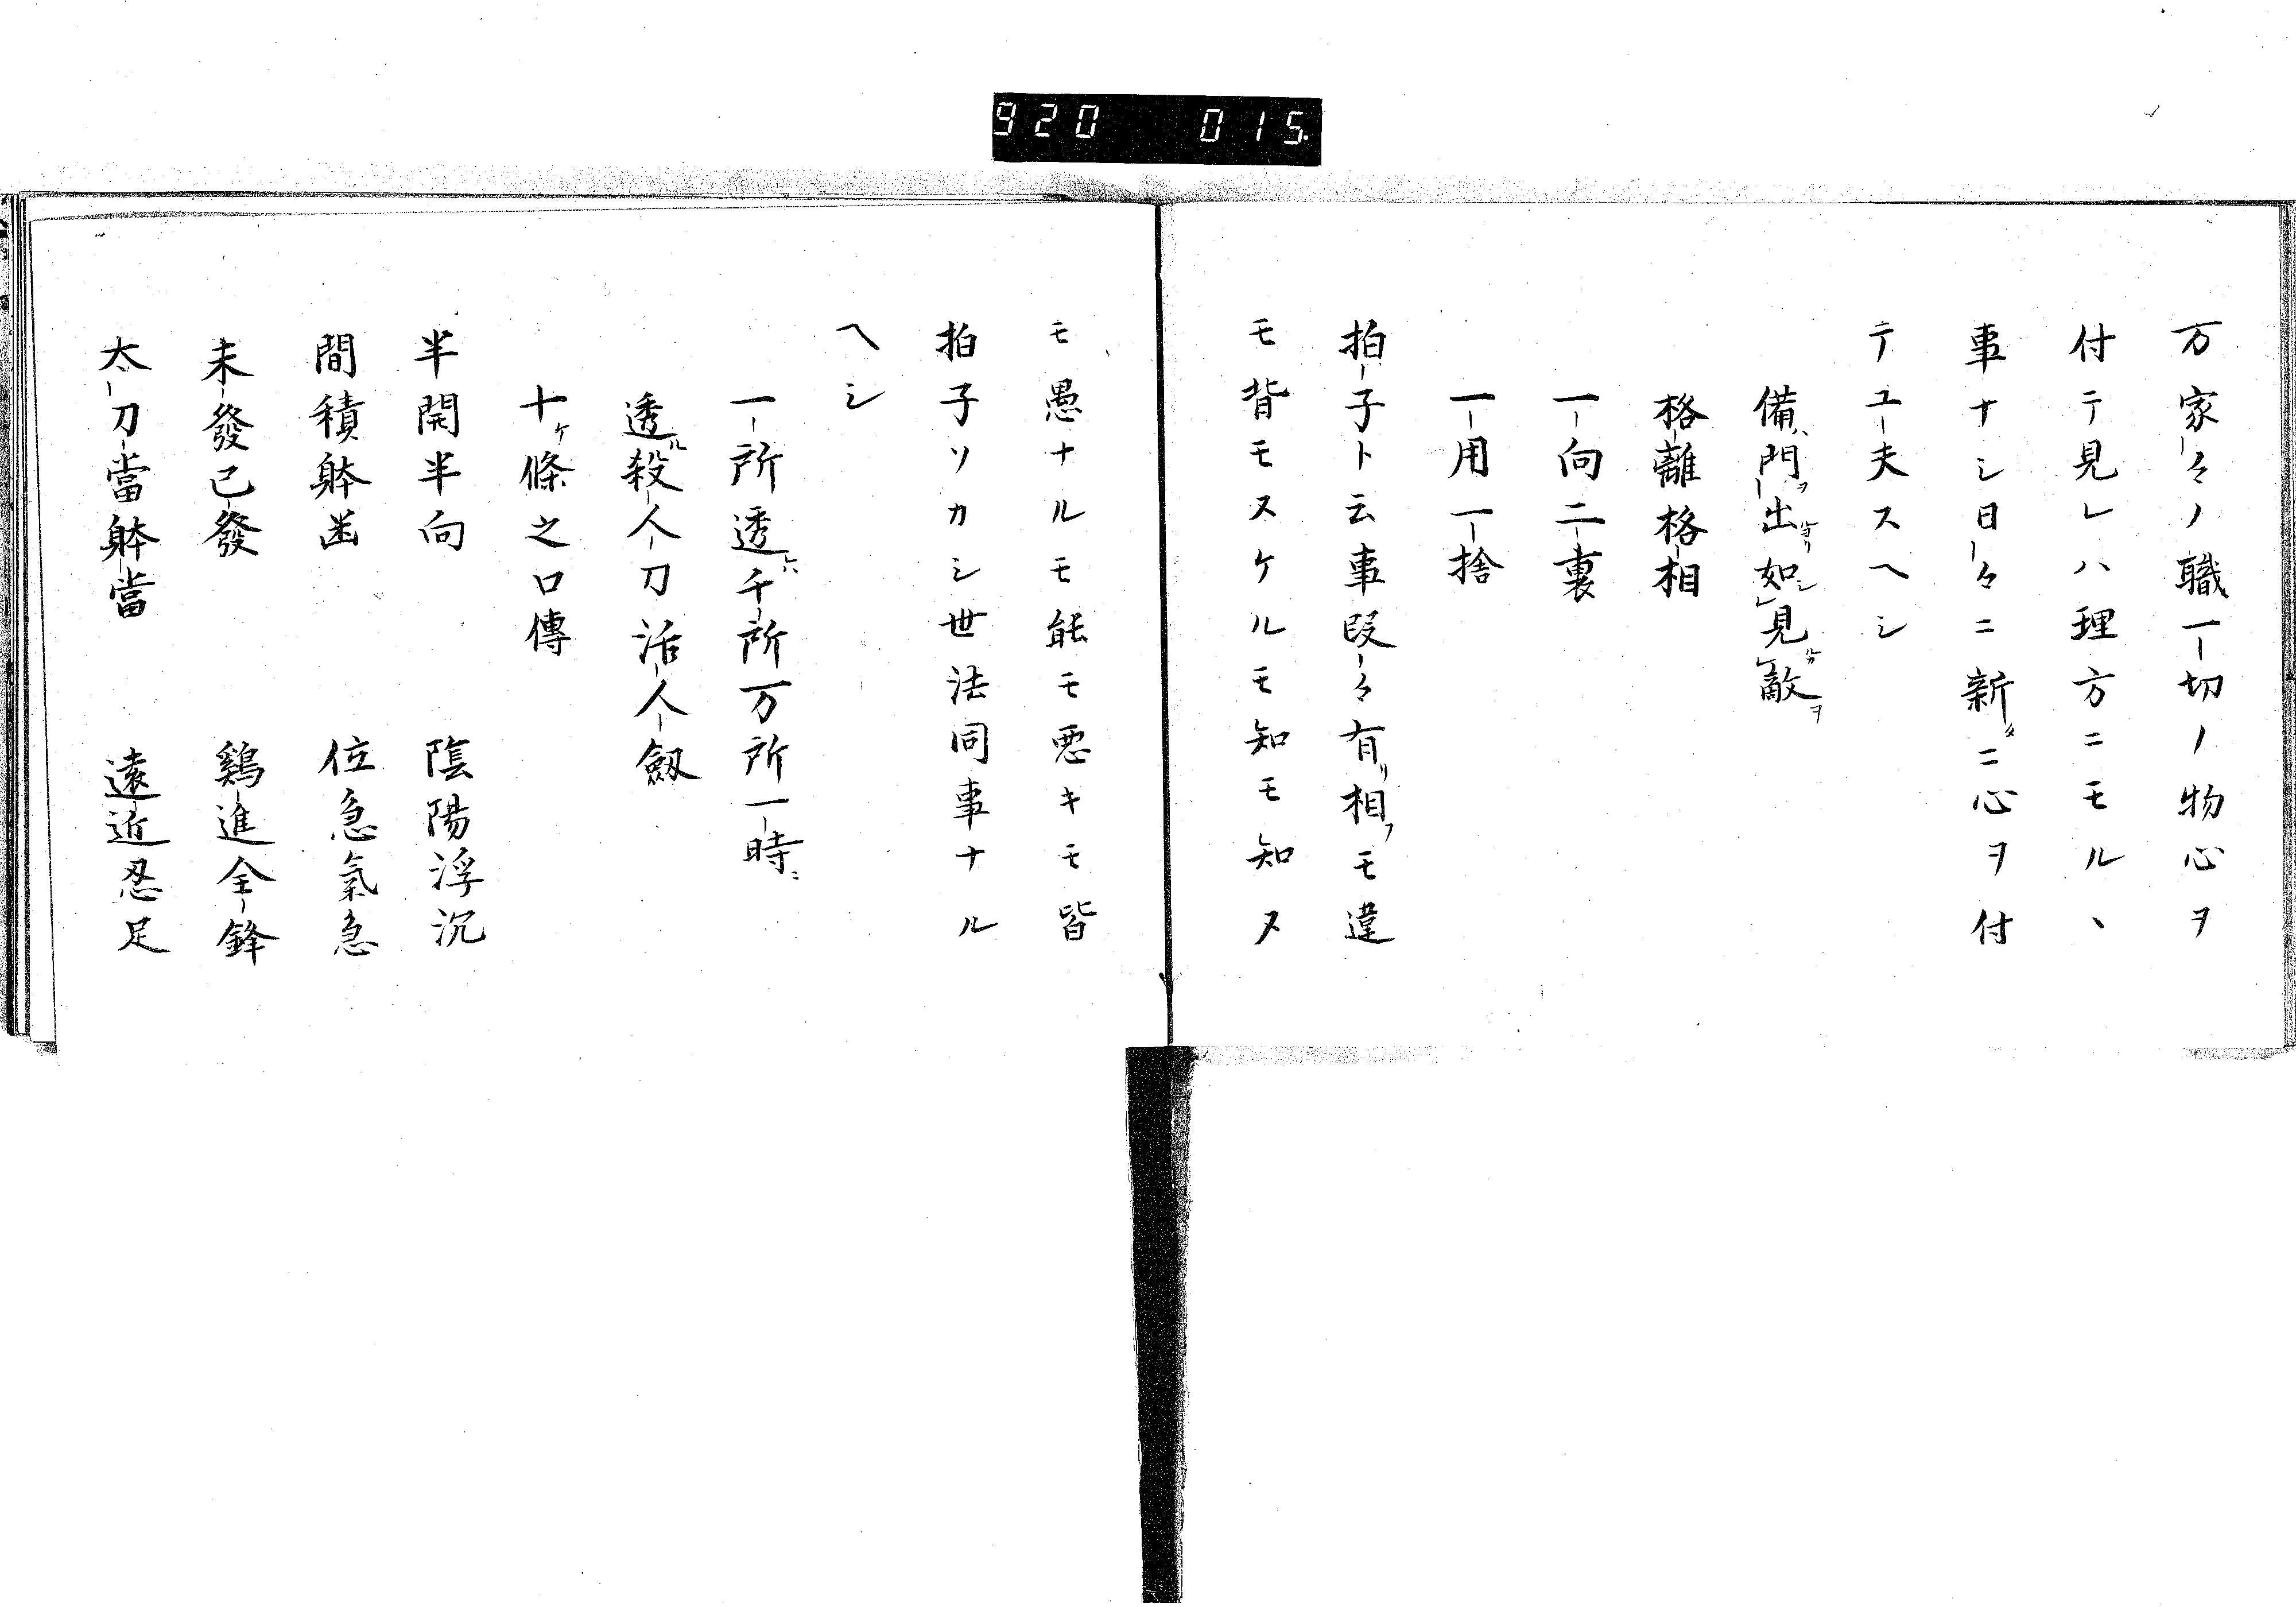 920 015
万家々ノ職一切ノ物心ヲ
付テ見レハ理方ニモルヽ
事ナシ日々ニ新タニ心ヲ付
テユ夫スヘシ
備ハ門ヲ出如シ見敵ヲ
格離格相
一向二裏
一用一捨
拍子ト云事段々有リ相フモ違
モ背モヌケルモ知モ知ヌ
モ愚ナルモ能モ悪キモ皆
拍子ソカシ世法同事ナル
ヘシ
一所透千所万所一時ニ
透ル殺人刀活人劔
十ケ條之口傳
半開半向 陰陽浮沉
間積躰 位急氣急
未發已發 鷄進全鋒
太刀當躰當 遠近忍足